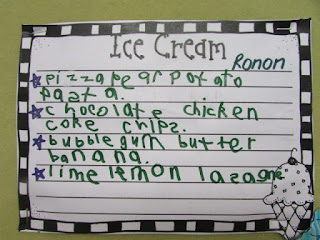 Ice Cream
Ronon
pizza pear potato
pasta.
chocolate chicken
coke chips.
bubblegum butter
banana.
lime lemon lazagne